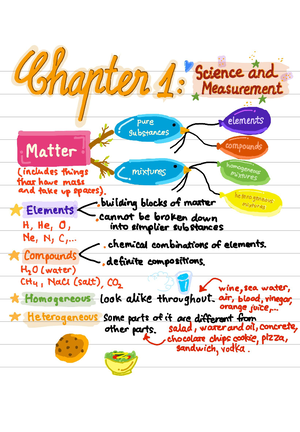 Chapter 1:
Science and
Measurement
pure
substances
elements
compounds
Matter
mixtures
homogeneous
mixtures
heterogeneous
mixtures
(includes things
that have mass
and take up spaces).
Elements
H, He, O,
Ne, N, C,...
. building blocks of matter
. cannot be broken down
into simplier substances
Compounds
H2O (water)
CH4, NaCl (salt), CO2
. chemical combinations of elements.
. definite compositions.
Homogeneous look alike throughout.
wine, sea water,
air, blood, vinegar,
orange juice,...
Heterogeneous Some parts of it are different from
other parts.
salad, water and oil, concrete,
chocolate chips cookie, pizza,
sandwich, vodka.